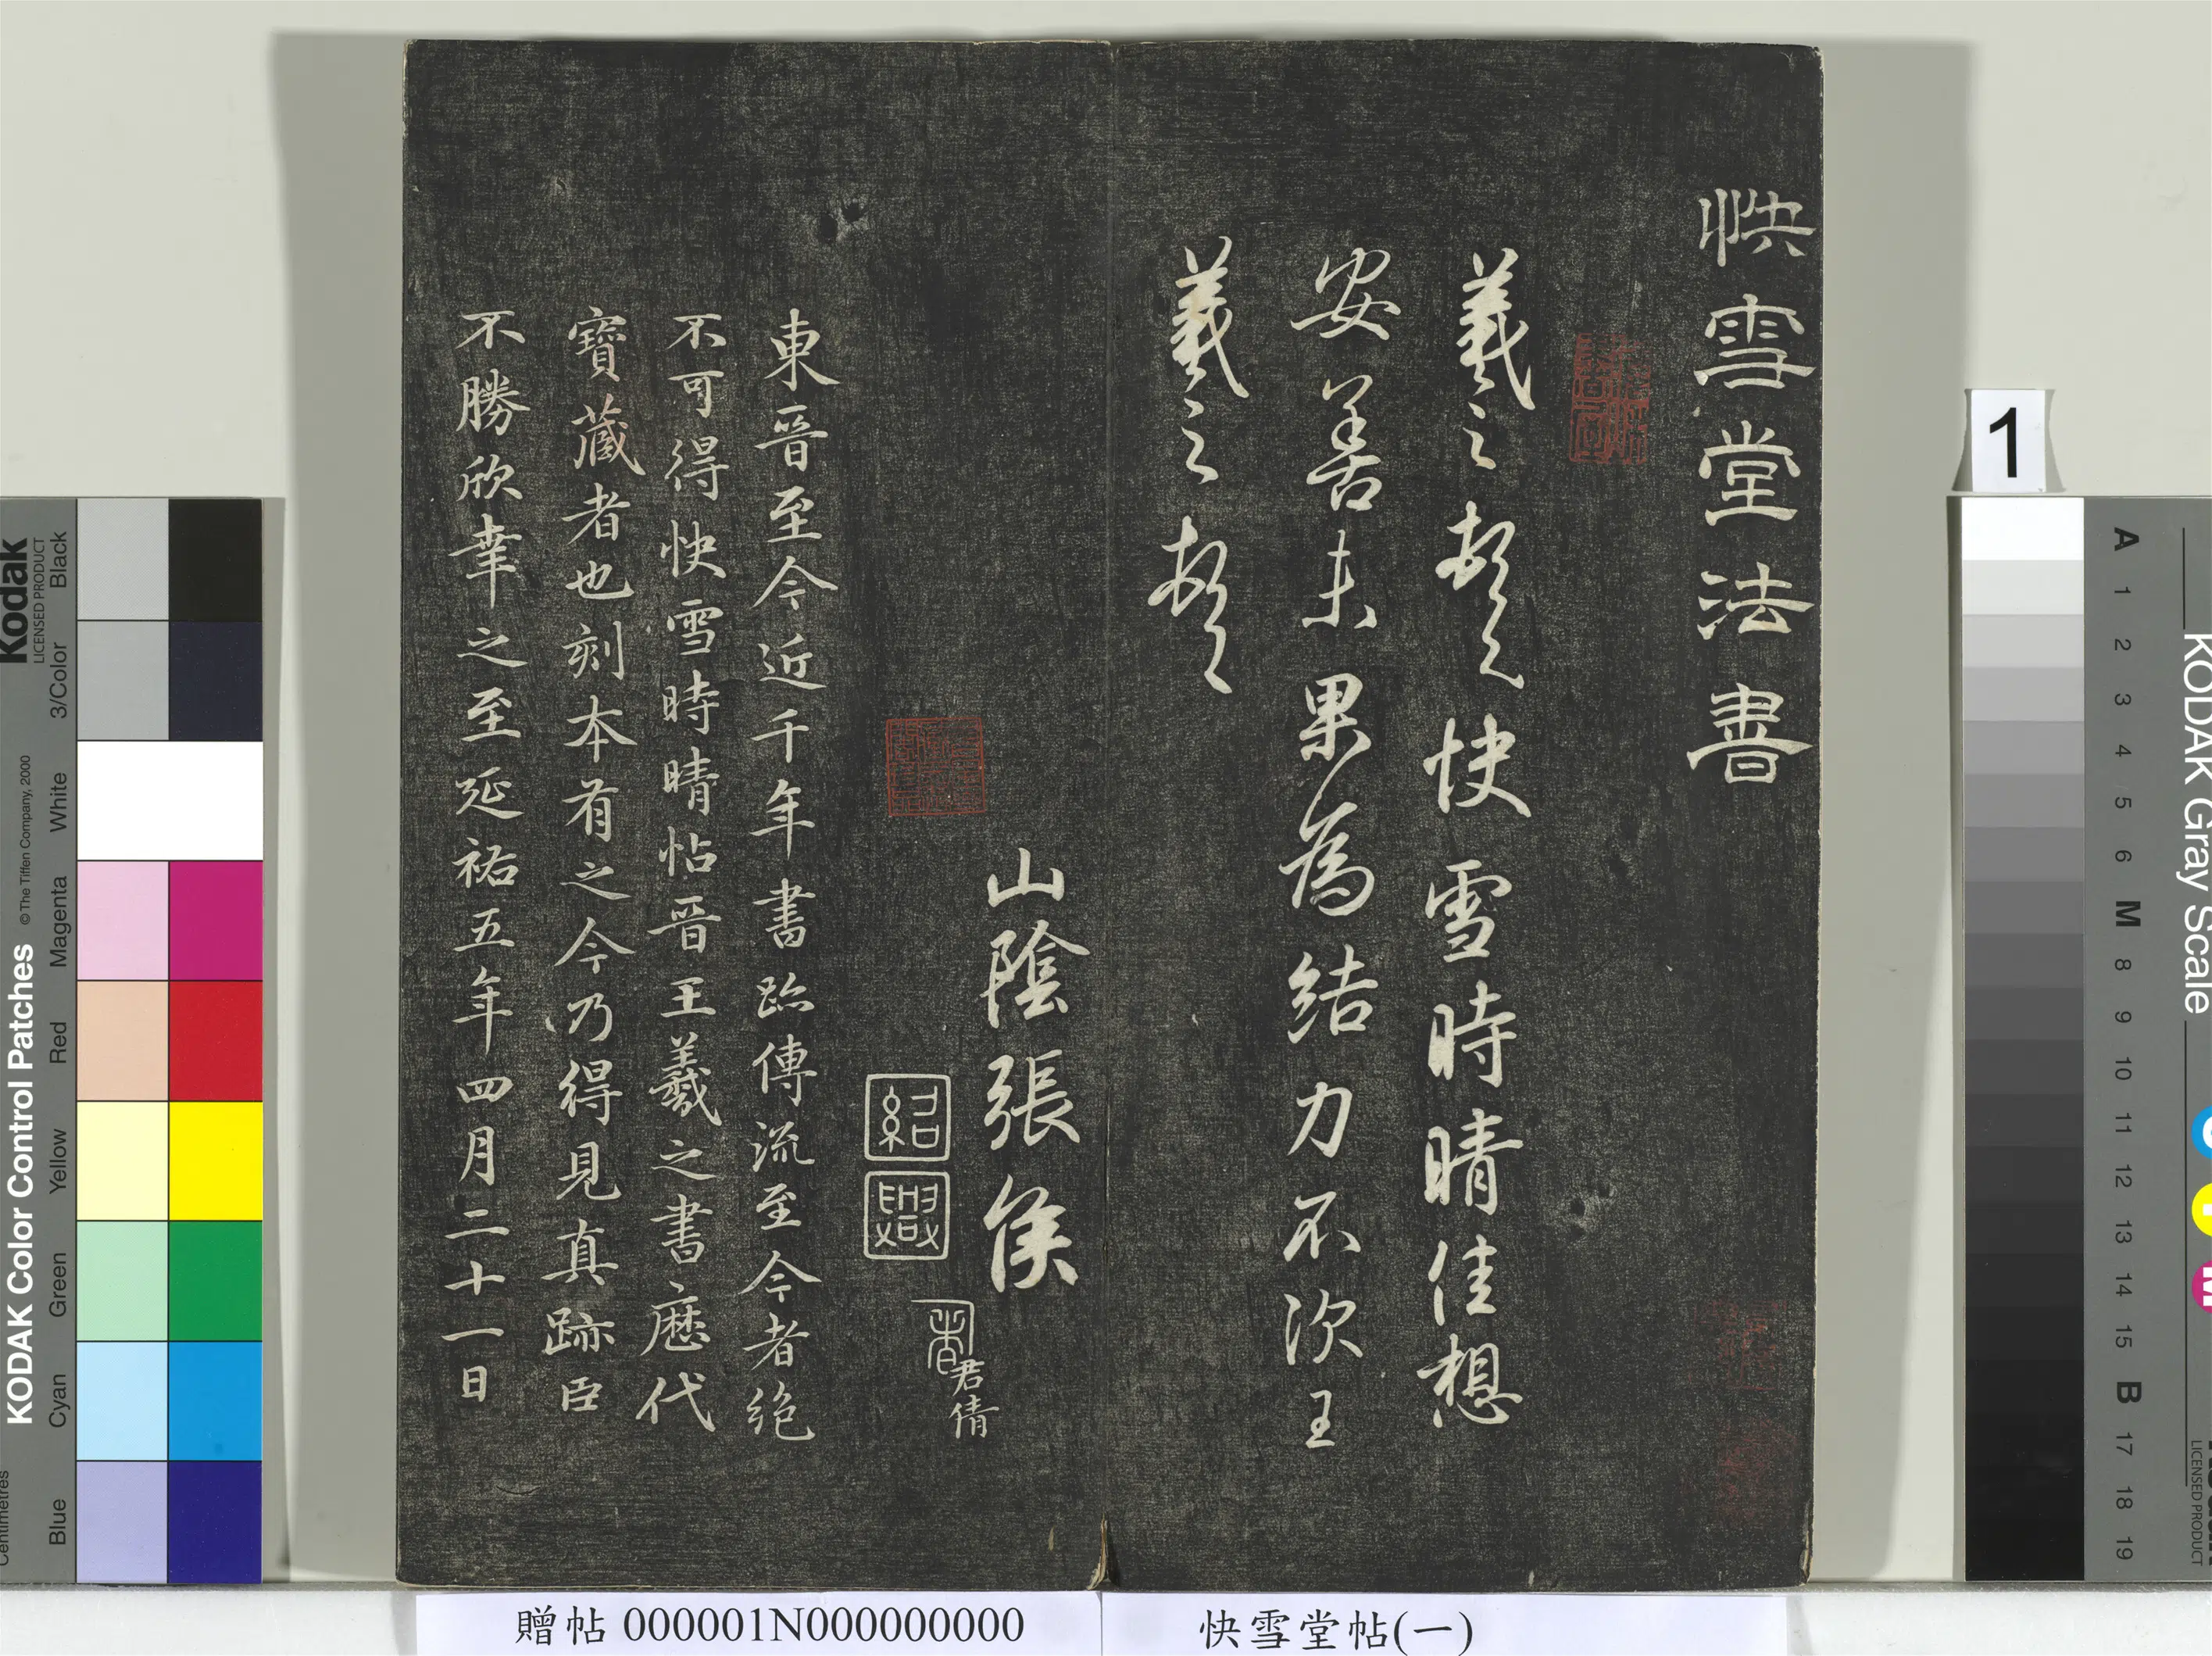 快雪堂法書
羲之頓首快雪時晴佳想
安善未果為結力不次王
羲之頓首
山陰張侯
紹
興
君倩
東晉至今近千年書跡傳流至今者絕
不可得快雪時晴帖晉王羲之書歷代
寶藏者也刻本有之今乃得見真跡臣
不勝欣幸之至延祐五年四月二十一日
贈帖 000001N000000000
快雪堂帖(一)
1
Kodak
LICENSED PRODUCT
KODAK Color Control Patches
© The Tiffen Company, 2000
Centimetres
Blue
Cyan
Green
Yellow
Red
Magenta
White
3/Color
Black
KODAK Gray Scale
LICENSED PRODUCT
A 1 2 3 4 5 6 M 8 9 10 11 12 13 14 15 B 17 18 19